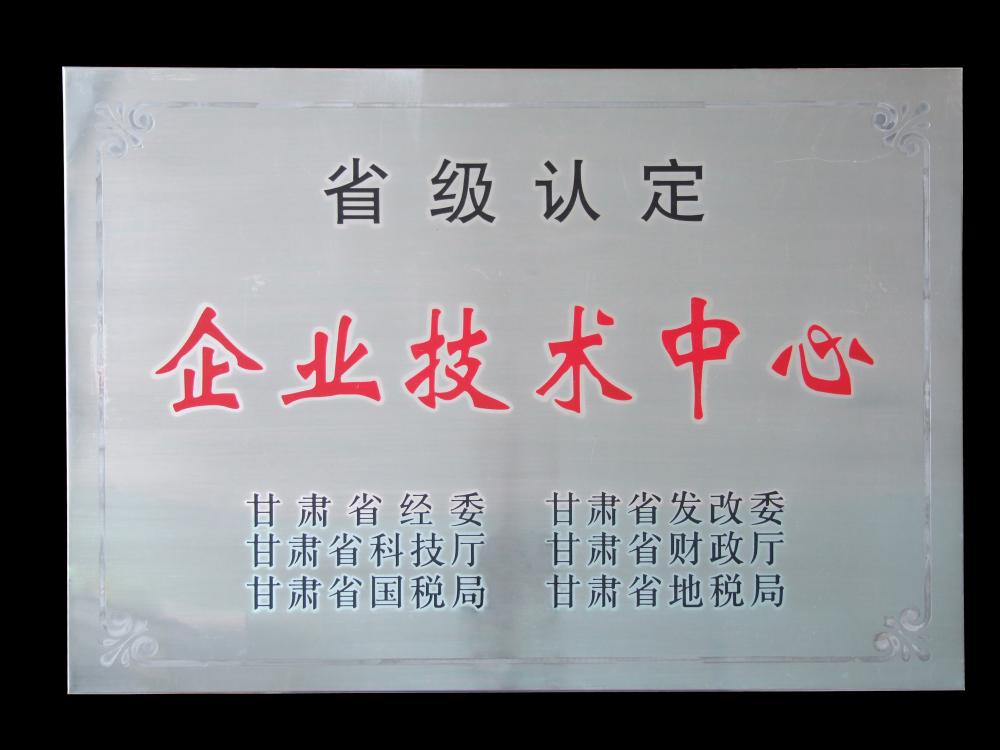 省级认定
企业技术中心
甘肃省经委 甘肃省发改委
甘肃省科技厅 甘肃省财政厅
甘肃省国税局 甘肃省地税局